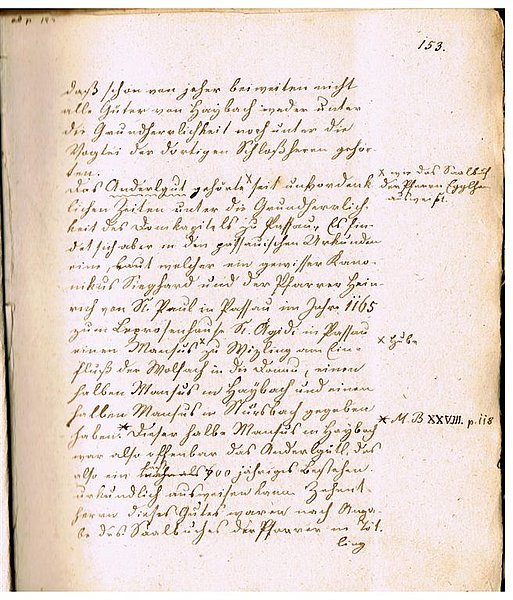 153.
daß schon von jeher bei weiten nicht
alle Güter von Haybach weder unter
die Grundherrlichkeit noch unter die
Vogtei der dortigen Schloßherrn gehör-
ten.
Das Anderlgut gehörte x seit unfordenk-
lichen Zeiten unter die Grundherrlich-
keit des Domkapitels zu Passau. Es fin-
det sich aber in den passauischen Urkunden
eine, laut welcher ein gewisser Kano-
nikus Sieghard und der Pfarrer Hein-
rich von St. Paul in Passau im Jahre 1165
zum Leprosenhause St. Ägidi in Passau
einen Mansus x zu Wizling am Ein-
fluß der Wolfach in die Donau, einen
halben Mansus in Haybach und einen
halben Mansus in gegeben
haben. * Dieser halbe Mansus in Haybach
war also offenbar das Anderlgütl, das
also ein 700 jähriges Bestehen
urkundlich ausweisen kann. Zehent-
herrn dieses Gutes waren nach Anga-
be des Saalbuches der Pfarrer in Töt-
ling
x wie das Saalbuch
der Pfarrei
ausweist.
x Hube
* M. B XXVIII. p. 118